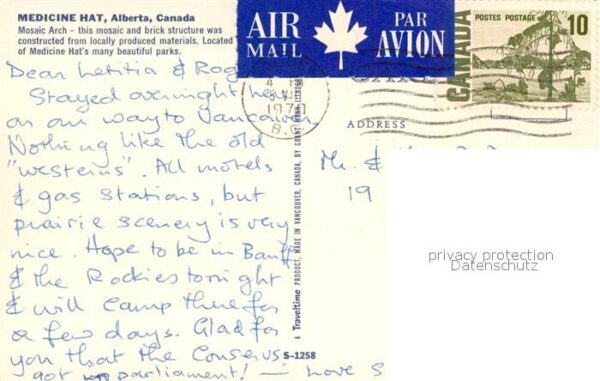 MEDICINE HAT, Alberta, Canada
Mosaic Arch - this mosaic and brick structure was
constructed from locally produced materials. Located
of Medicine Hat's many beautiful parks.
AIR MAIL
PAR AVION
CANADA
POSTES POSTAGE
10
1970
B.C.
ADDRESS
Dear Letitia & Rog
Stayed overnight he
on our way to Vancouver
Nothing like the old
"westerns". All motels
& gas stations, but
prairie scenery is very
nice. Hope to be in Banff
& the Rockies tonight
& will camp there for
a few days. Glad for
you that the Conservs
got parliament! — Love S
Mr. &
19
A Traveltime PRODUCT, MADE IN VANCOUVER, CANADA, BY
S-1258
privacy protection
Datenschutz